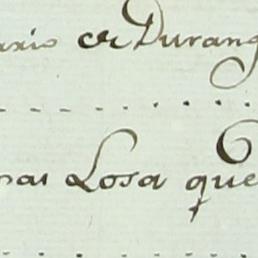 ario de Durang
mas Losa que